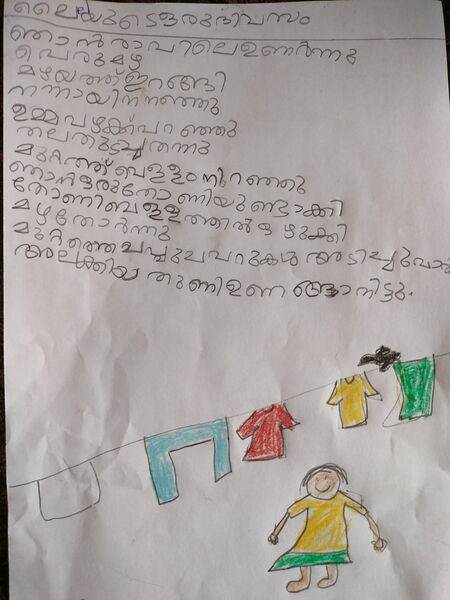 ലൈലയുടെ ഒരു ദിവസം
ഞാൻ രാവിലെ ഉണർന്നു
പെരുമഴ
മഴയത്ത് ഇറങ്ങി
നന്നായി നനഞ്ഞു
ഉമ്മ വഴക്ക് പറഞ്ഞു
തല തുടച്ചു തന്നു
മുറ്റത്ത് വെള്ളം നിറഞ്ഞു
ഞാൻ ഒരു തോണിയുണ്ടാക്കി
തോണി വെള്ളത്തിൽ ഒഴുക്കി
മഴ തോർന്നു
മുറ്റത്തെ ചപ്പുചവറുകൾ അടിച്ചുവാരി
അലക്കിയ തുണി ഉണങ്ങാനിട്ടു.